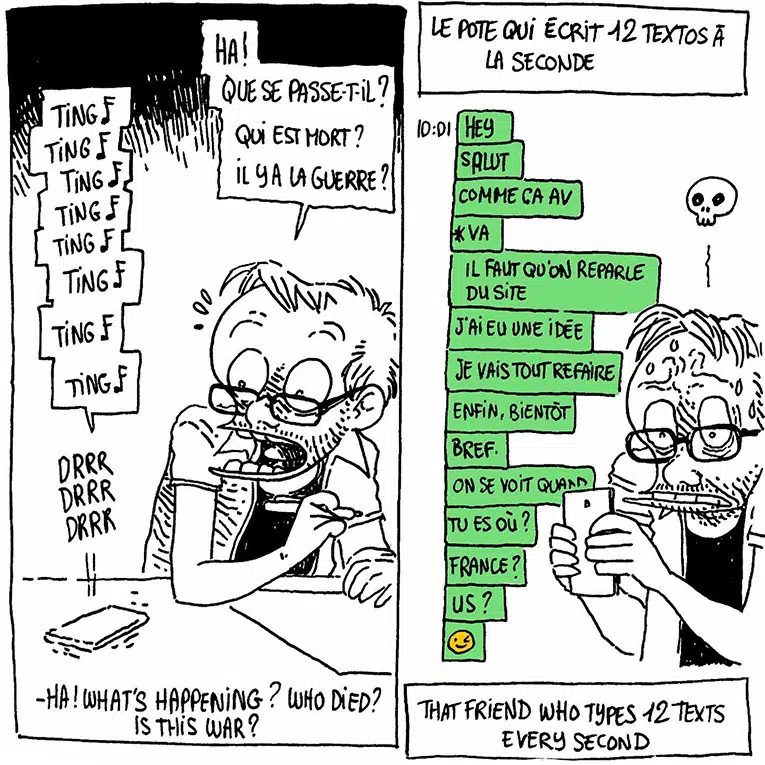 HA!
QUE SE PASSE-T-IL?
QUI EST MORT?
IL Y A LA GUERRE?
TING
TING
TING
TING
TING
TING
TING
TING
DRRR
DRRR
DRRR
-HA! WHAT'S HAPPENING? WHO DIED?
IS THIS WAR?
LE POTE QUI ÉCRIT 12 TEXTOS À
LA SECONDE
10:01
HEY
SALUT
COMME ÇA AV
*VA
IL FAUT QU'ON REPARLE
DU SITE
J'AI EU UNE IDÉE
JE VAIS TOUT REFAIRE
ENFIN, BIENTÔT
BREF.
ON SE VOIT QUAND
TU ES OÙ?
FRANCE?
US?
THAT FRIEND WHO TYPES 12 TEXTS
EVERY SECOND